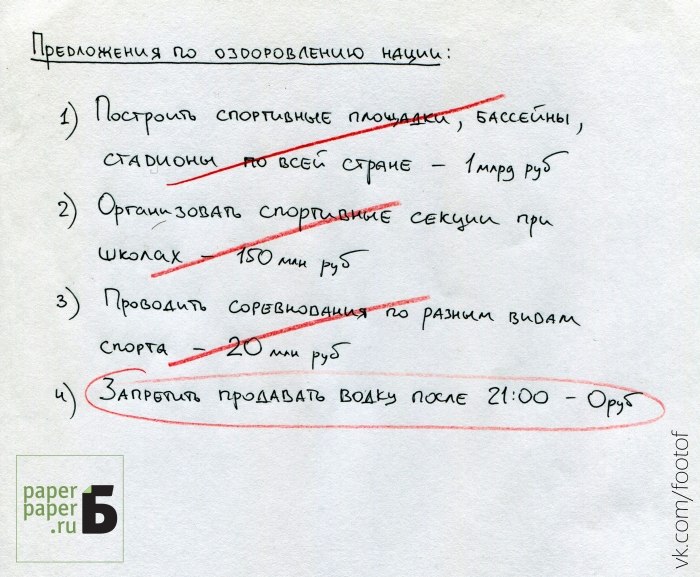 Предложения по оздоровлению нации:
1) Построить спортивные площадки, бассейны,
стадионы по всей стране – 1 млрд руб
2) Организовать спортивные секции при
школах – 150 млн руб
3) Проводить соревнования по разным видам
спорта – 20 млн руб
4) Запретить продавать водку после 21:00 – 0 руб
paper
paper
.ru
Б
vk.com/footof